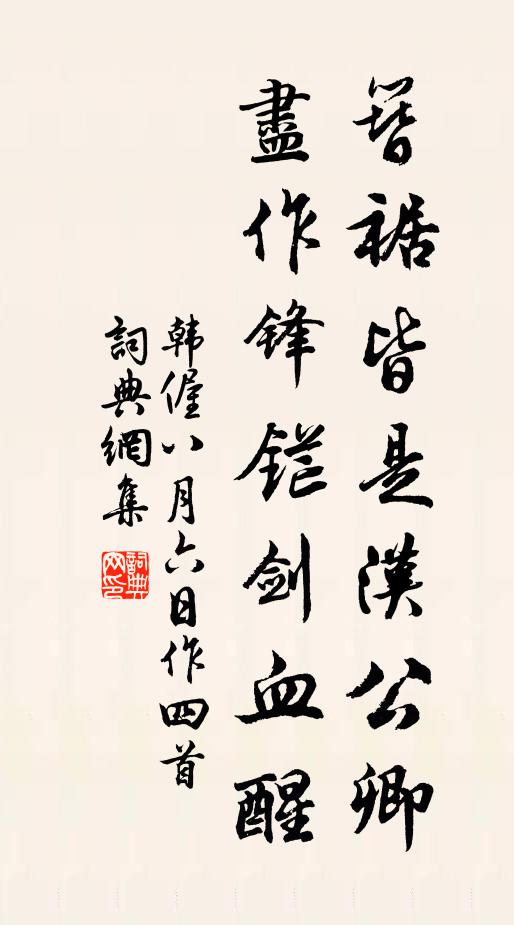 簪裾皆是漢公卿
盡作鋒鋩劍血醒
韓偓八月六日作四首
詞典網集
詞典
网印